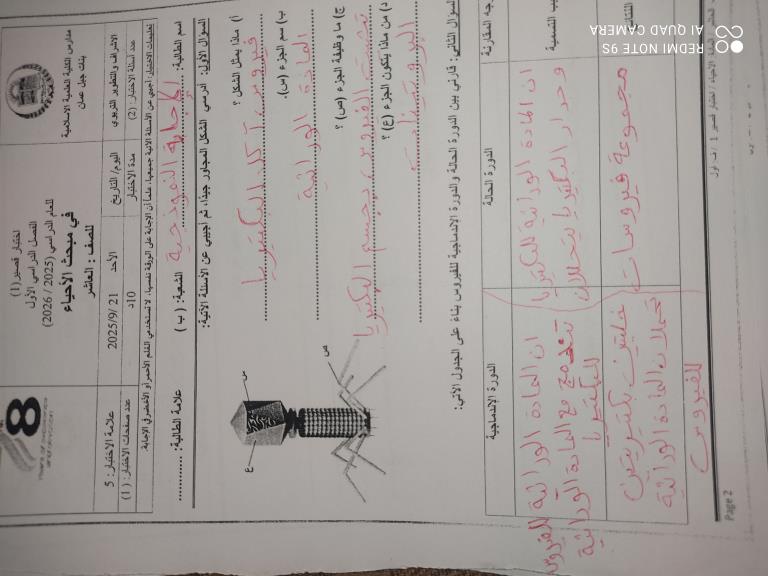 مدارس الكلية العلمية الاسلامية
بنات جبل عمان
اختبار قصير (1)
الفصل الدراسي الأول
للعام الدراسي (2025 / 2026)
في مبحث الأحياء
للصف : العاشر
الاشراف والتطوير التربوي
اليوم/ التاريخ
الأحد 21 /9/2025
علامة الاختبار: 5
عدد أسئلة الاختبار: (2)
مدة الاختبار
10د
عدد صفحات الاختبار: ( 1)
تعليمات الاختبار: أجيبي عن الأسئلة الآتية جميعها، علماً أن الاجابة على الورقة نفسها، لا تستخدمي القلم الأحمر أو الأخضر في الاجابة.
اسم الطالبة: الإجابة النموذجية الشعبة: ( ب ) علامة الطالبة:
السؤال الأول: ادرسي الشكل المجاور جيدًا، ثم أجيبي عن الأسئلة الآتية:
أ) ماذا يمثل الشكل ؟
فيروس آكل البكتيريا
ب) سم الجزء (س).
المادة الوراثية
ج) ما وظيفة الجزء (ص) ؟
تثبيت الفيروس بجسم البكتيريا
د) من ماذا يتكون الجزء (ع) ؟
البروتينات
س
ع
ص
السؤال الثاني: قارني بين الدورة الحالة والدورة الاندماجية للفيروس بناء على الجدول الآتي:
وجه المقارنة
الدورة الحالة
الدورة الاندماجية
سبب التسمية
ان المادة الوراثية للبكتيريا
وجدار البكتيريا يتحللان
ان المادة الوراثية للفيروس
تندمج مع المادة الوراثية
للبكتيريا
مجموعة فيروسات
خليتين بكتيريتين
تحملان المادة الوراثية
للفيروس
Page 2
REDMI NOTE 9S
AI QUAD CAMERA